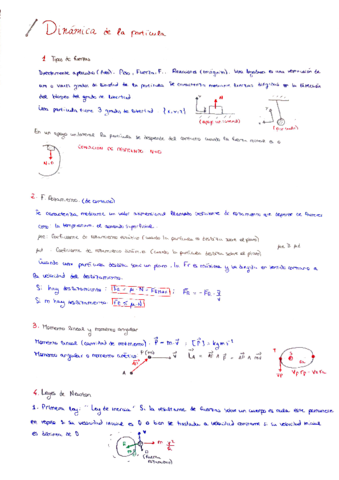 Dinámica de la partícula
1. Tipos de fuerzas
Directamente aplicadas (Fda): Peso, Fuerza F... Reacciones (incógnitas). Una ligadura es una restricción de
uno o varios grados de libertad de la partícula. Se caracteriza mediante fuerzas dirigidas en la dirección
del bloqueo del grado de libertad
Una partícula tiene 3 grados de libertad {x, y, z}
(apoyo unilateral)
En un apoyo unilateral la partícula se desprende del contacto cuando la fuerza normal es 0
CONDICIÓN DE DESPEGUE N=0
N=0
2. F. Rozamiento (de contacto)
Se caracteriza mediante un valor experimental llamado coeficiente de rozamiento que depende de factores
como la temperatura, el estado superficial...
μe: Coeficiente de rozamiento estático (cuando la partícula no desliza sobre el plano)
μd: Coeficiente de rozamiento dinámico (cuando la partícula desliza sobre el plano)
Cuando una partícula desliza sobre un plano, la Fr es máxima y va dirigida en sentido contrario a
la velocidad del deslizamiento.
Si hay deslizamiento:
Si no hay deslizamiento:
3. Momento lineal y momento angular
Momento lineal (cantidad de movimiento): P = m·v
Momento angular o momento cinético:
4. Leyes de Newton
1. Primera Ley: "Ley de inercia" Si la resultante de fuerzas sobre un cuerpo es nula este permanece
en reposo si su velocidad inicial es 0 o bien se traslada a velocidad constante si su velocidad inicial
es distinta de 0